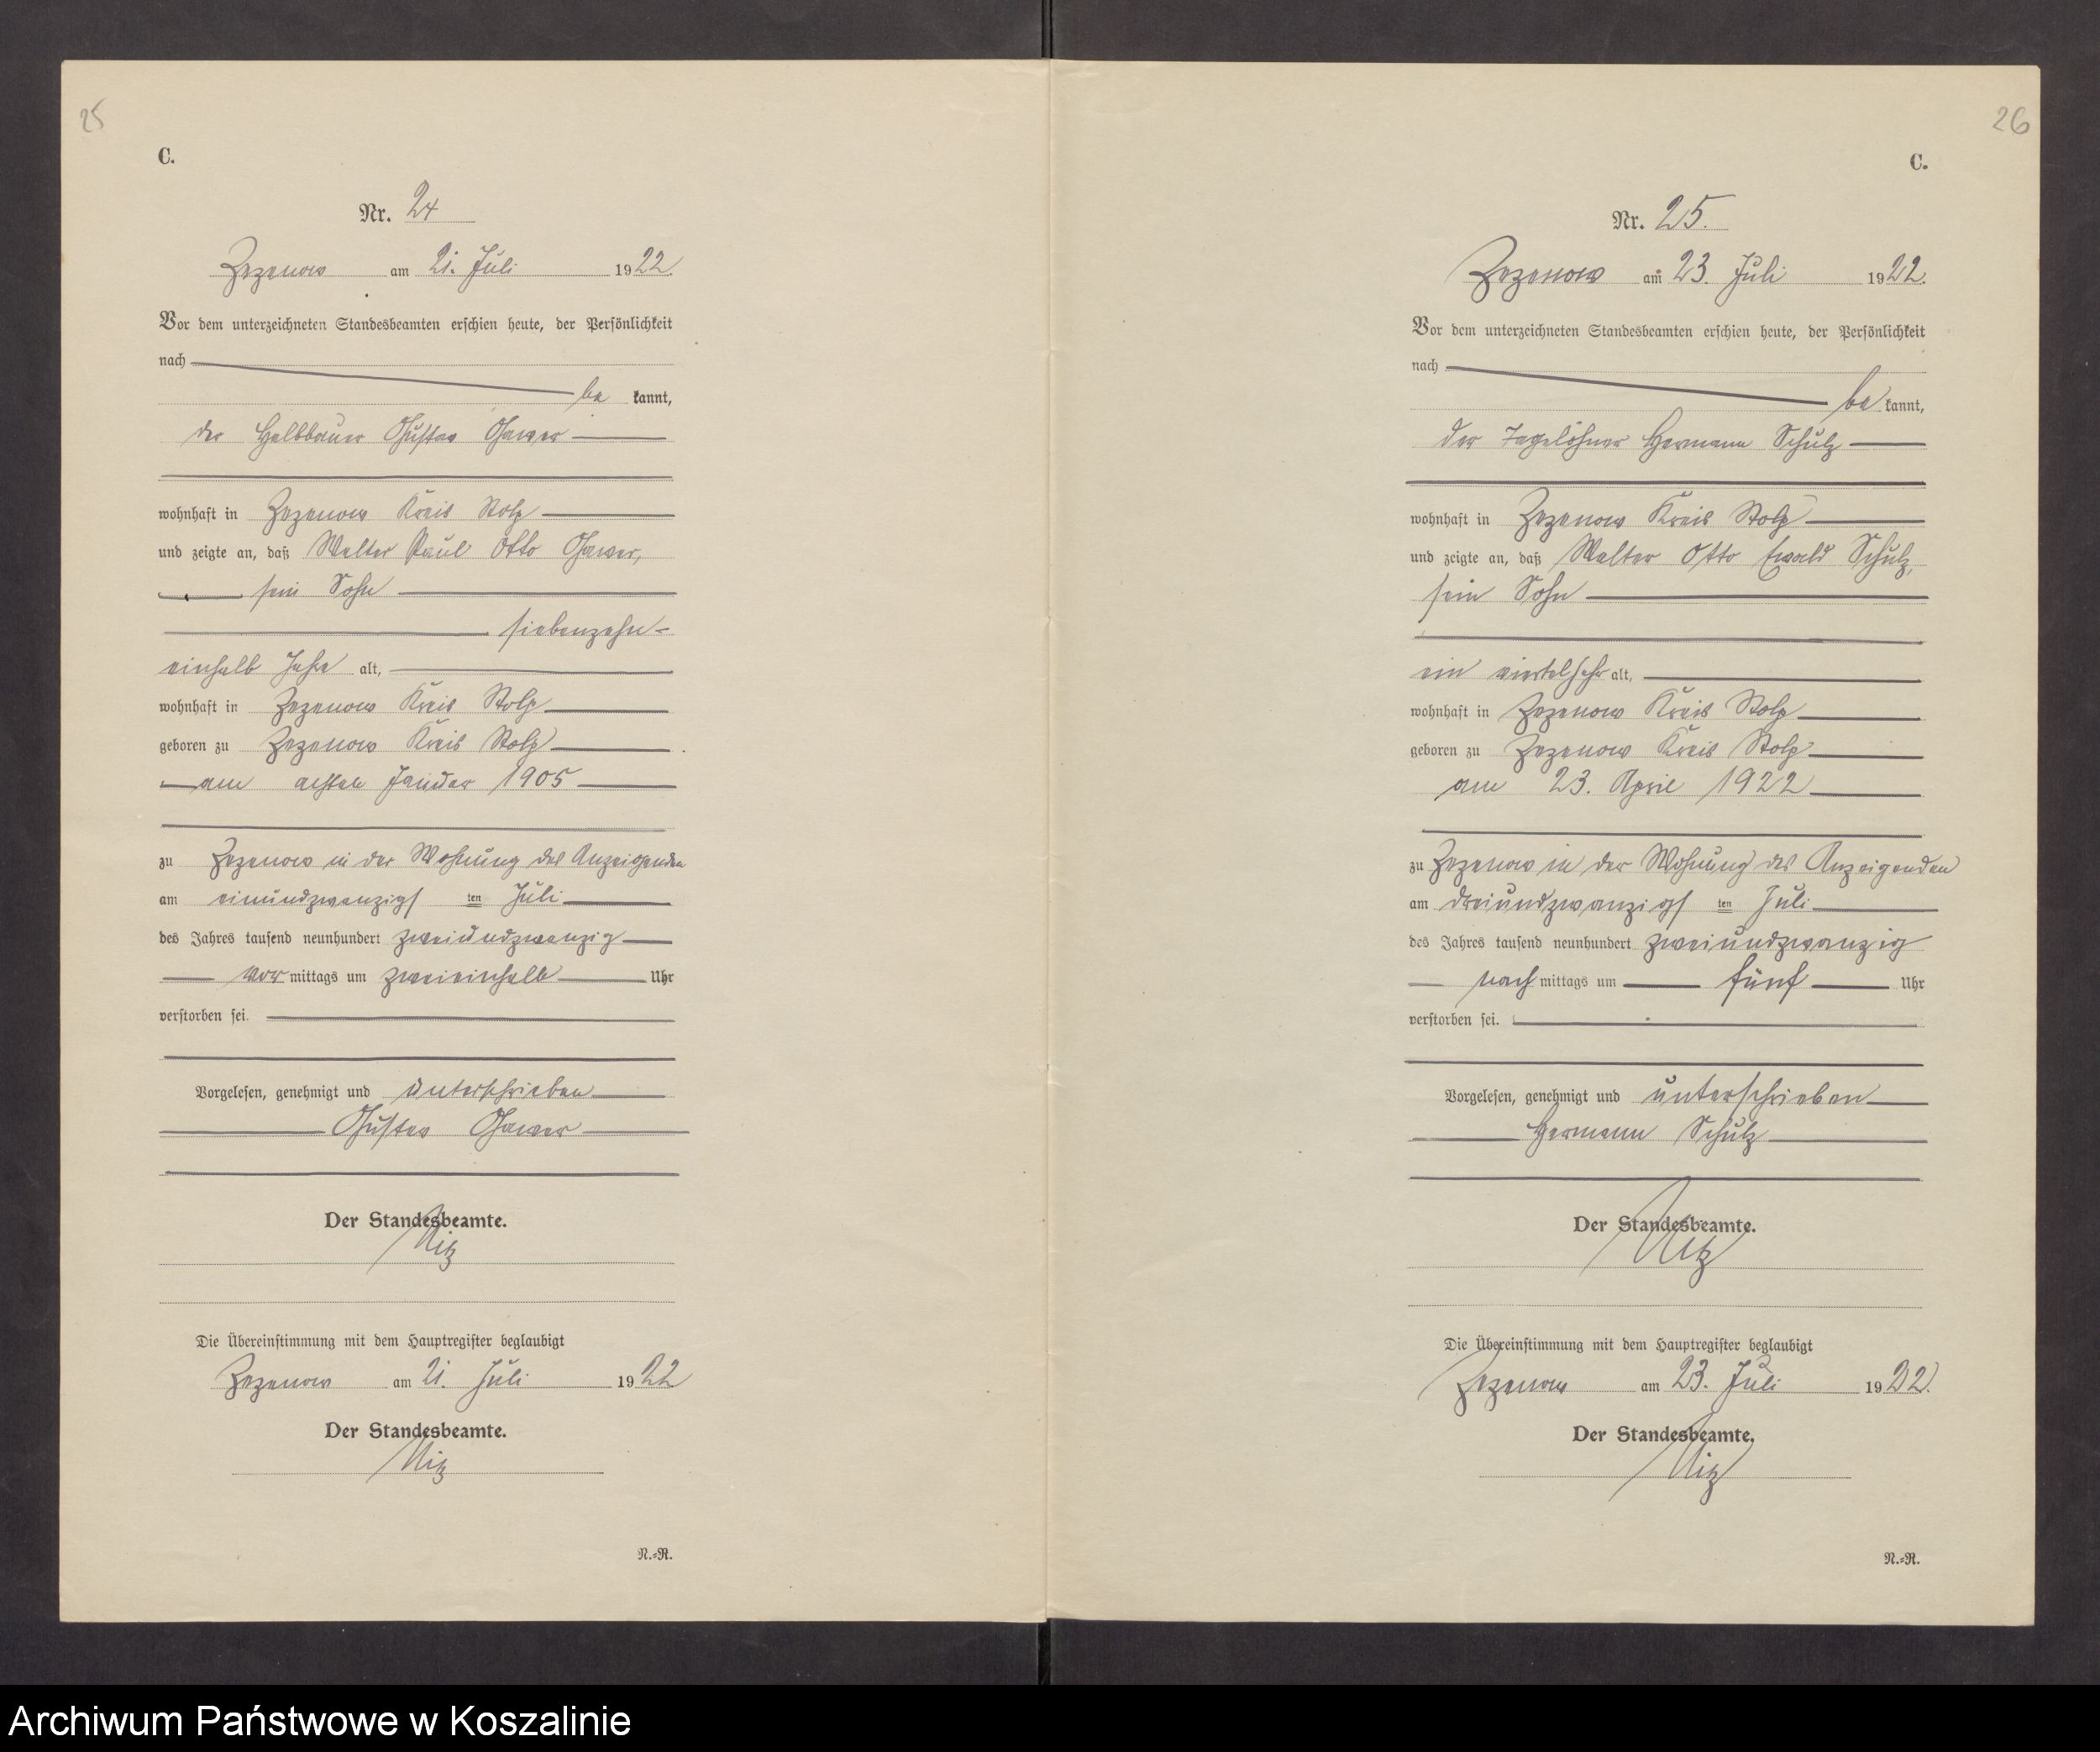 25
C.
Nr. 24
Zezenow am 21. Juli 1922.
Vor dem unterzeichneten Standesbeamten erschien heute, der Persönlichkeit
nach
be kannt,
der Halbbauer Gustav
wohnhaft in Zezenow Kreis Stolp
und zeigte an, daß Walter Paul Otto
sein Sohn
siebenzehn-
einhalb Jahre alt,
wohnhaft in Zezenow Kreis Stolp
geboren zu Zezenow Kreis Stolp
am achten Januar 1905
zu Zezenow in der Wohnung des Anzeigenden
am einundzwanzigs ten Juli
des Jahres tausend neunhundert zweiundzwanzig
vor mittags um zweieinhalb Uhr
verstorben sei.
Vorgelesen, genehmigt und unterschrieben
Gustav
Der Standesbeamte.
Nitz
Die Übereinstimmung mit dem Hauptregister beglaubigt
Zezenow am 21. Juli 1922
Der Standesbeamte.
Nitz
N.=R.
26
C.
Nr. 25.
Zezenow am 23. Juli 1922.
Vor dem unterzeichneten Standesbeamten erschien heute, der Persönlichkeit
nach
be kannt,
der Tagelöhner Hermann Schulz
wohnhaft in Zezenow Kreis Stolp
und zeigte an, daß Walter Otto Ewald Schulz,
sein Sohn
ein vierteljahr alt,
wohnhaft in Zezenow Kreis Stolp
geboren zu Zezenow Kreis Stolp
am 23. April 1922
zu Zezenow in der Wohnung des Anzeigenden
am dreiundzwanzigs ten Juli
des Jahres tausend neunhundert zweiundzwanzig
nach mittags um fünf Uhr
verstorben sei.
Vorgelesen, genehmigt und unterschrieben
Hermann Schulz
Der Standesbeamte.
Nitz
Die Übereinstimmung mit dem Hauptregister beglaubigt
Zezenow am 23. Juli 1922.
Der Standesbeamte.
Nitz
N.=R.
Archiwum Państwowe w Koszalinie